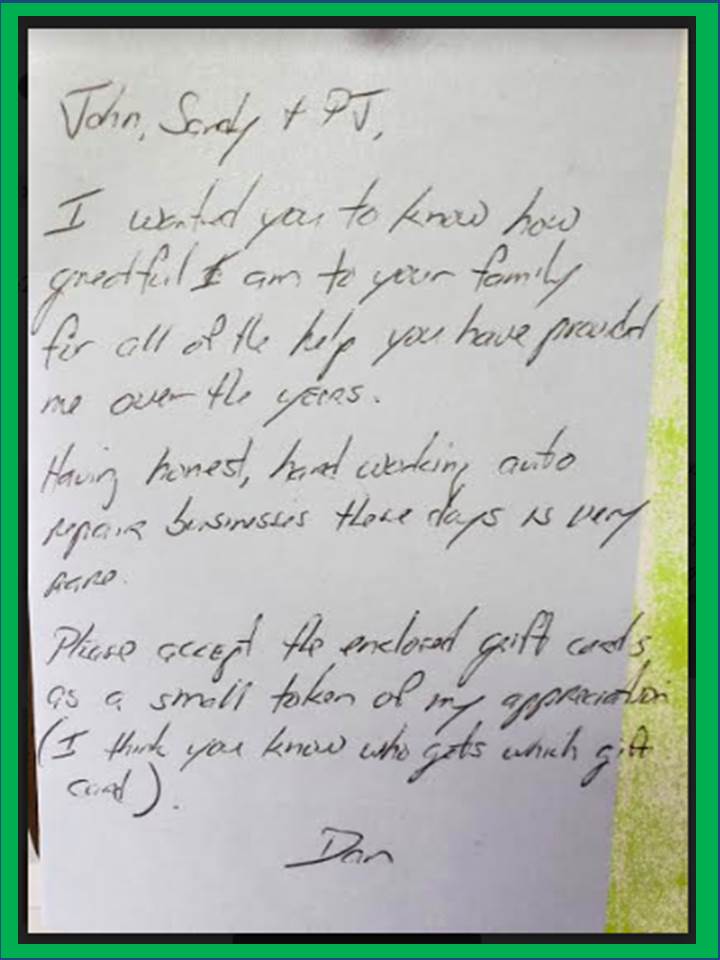 John, Sandy + PJ,
I wanted you to know how
greatful I am to your family
for all of the help you have provided
me over the years.
Having honest, hard working auto
repair businesses these days is very
rare.
Please accept the enclosed gift cards
as a small token of my appreciation
(I think you know who gets which gift
card).
Dan